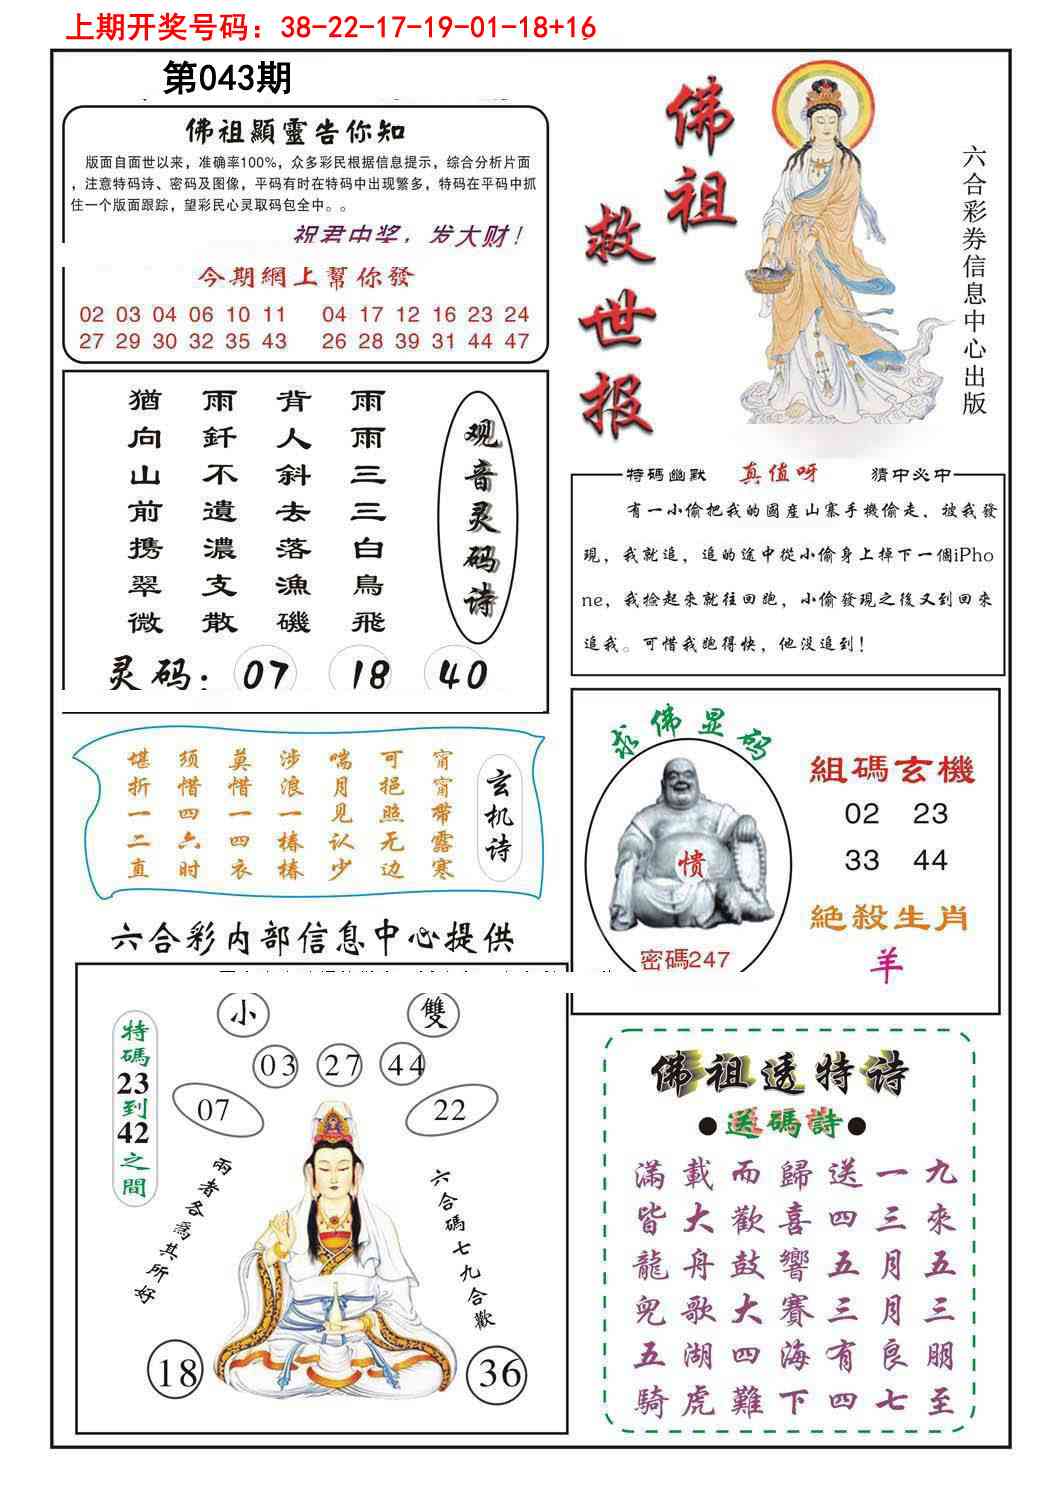 上期开奖号码：38-22-17-19-01-18+16
第043期
佛祖顯靈告你知
版面自面世以来，准确率100%，众多彩民根据信息提示，综合分析片面
，注意特码诗、密码及图像，平码有时在特码中出现繁多，特码在平码中抓
住一个版面跟踪，望彩民心灵取码包全中。。
祝君中奖，发大财！
今期網上幫你發
02 03 04 06 10 11 04 17 12 16 23 24
27 29 30 32 35 43 26 28 39 31 44 47
佛祖
救世报
六合彩券信息中心出版
观音灵码诗
雨雨三三白鳥飛
背人斜去落漁磯
雨釺不遺濃支散
猶向山前携翠微
灵码：07 18 40
特碼幽默 真值呀 猜中必中
有一小偷把我的國産山寨手機偷走，被我發
現，我就追，追的途中從小偷身上掉下一個iPho
ne，我捡起來就往回跑，小偷發現之後又到回來
追我。可惜我跑得快，他没追到！
玄机诗
甯甯帶露寒
可挹照无边
喘月见认少
涉浪一椿椿
莫惜一四衣
须惜四六时
堪折一二直
求佛显码
愤
密碼247
組碼玄機
02 23
33 44
絶殺生肖
羊
六合彩内部信息中心提供
小 雙
03 27 44
07 22
特碼23到42之間
兩者各爲其所好
六合碼七九合歡
18 36
佛祖透特诗
●送碼詩●
滿載而歸送一九
皆大歡喜四三來
龍舟鼓響五月五
兒歌大賽三月三
五湖四海有良朋
騎虎難下四七至